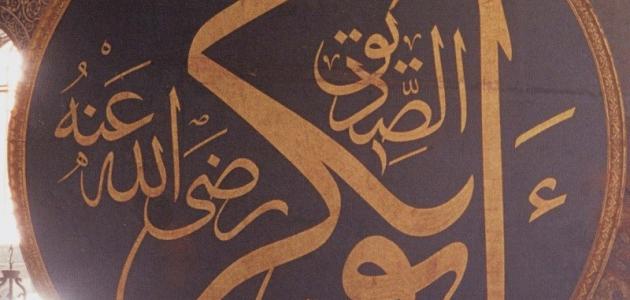 أبو بكر الصِّدِّيق رضي الله عنه